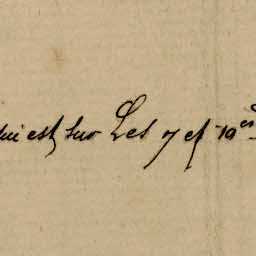 qui est sur Les 7 et 19es